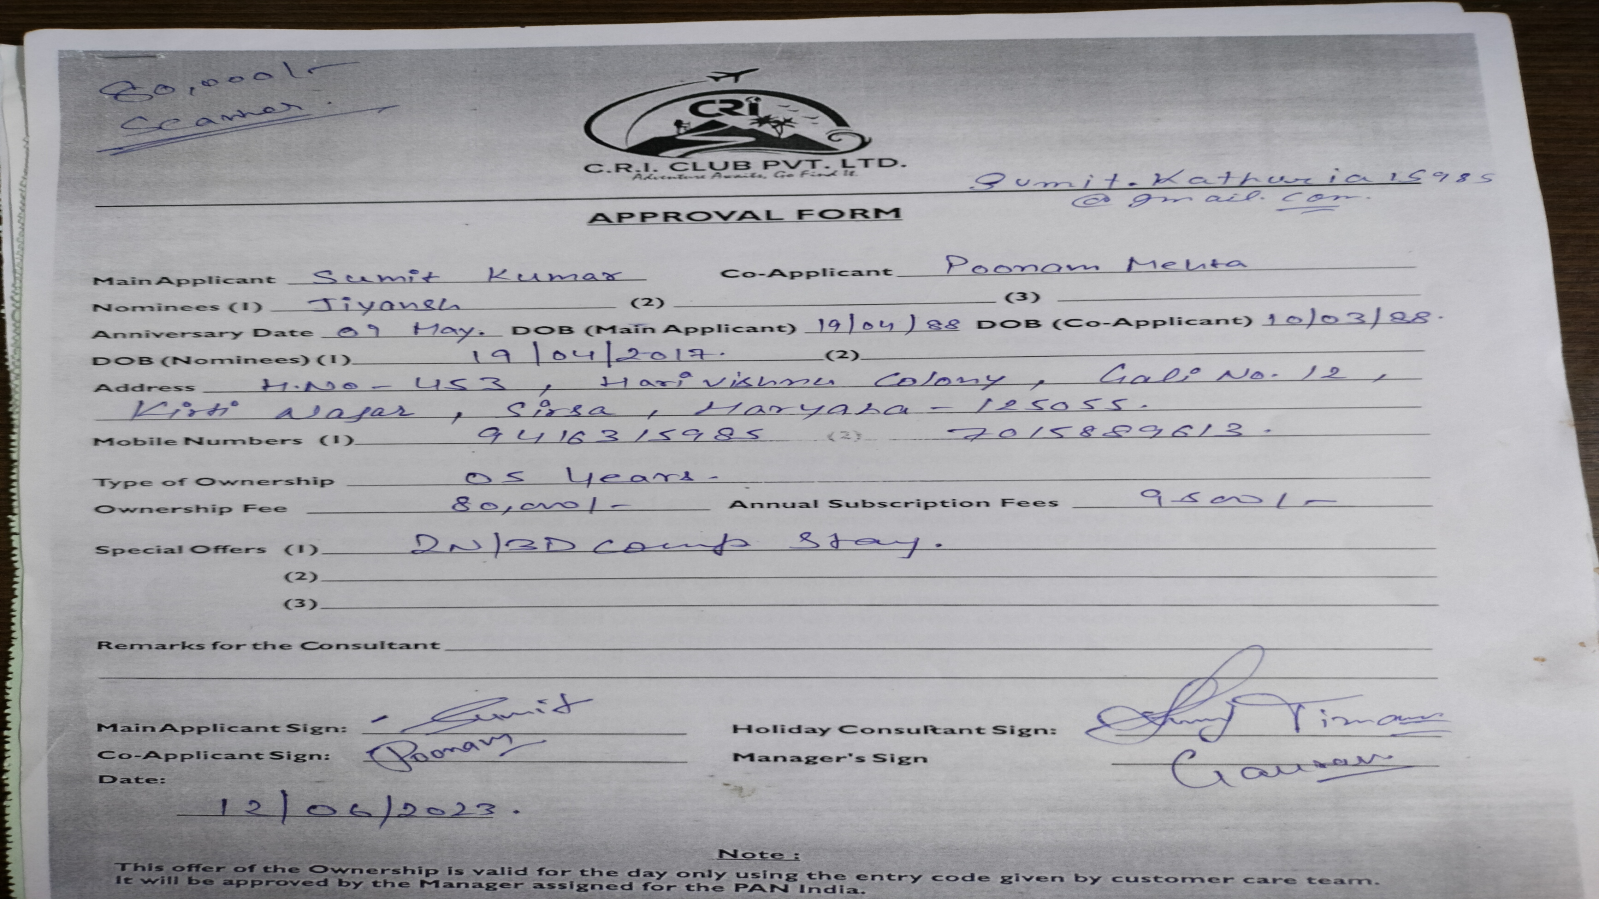 80,000/-
Scanner.
CRI
C.R.I. CLUB PVT. LTD.
Adventure Awaits, Go Find It.
Sumit.Kathuria15985
@gmail.com.
APPROVAL FORM
Main Applicant Sumit Kumar Co-Applicant Poonam Mehta
Nominees (1) Jiyansh (2) (3)
Anniversary Date 09 May. DOB (Main Applicant) 19/04/88 DOB (Co-Applicant) 10/03/88.
DOB (Nominees) (1) 19/04/2017. (2)
Address H.No-453, Hari vishnu Colony, Gali No. 12,
Kirti Nagar, Sirsa, Haryana-125055.
Mobile Numbers (1) 9416315985 (2) 7015889613.
Type of Ownership 05 Years.
Ownership Fee 80,000/- Annual Subscription Fees 9500/-
Special Offers (1) 2N/3D comp Stay.
(2)
(3)
Remarks for the Consultant
Main Applicant Sign: Sumit Holiday Consultant Sign:
Co-Applicant Sign: Poonam Manager's Sign Gaurav
Date:
12/06/2023.
Note :
This offer of the Ownership is valid for the day only using the entry code given by customer care team.
It will be approved by the Manager assigned for the PAN India.